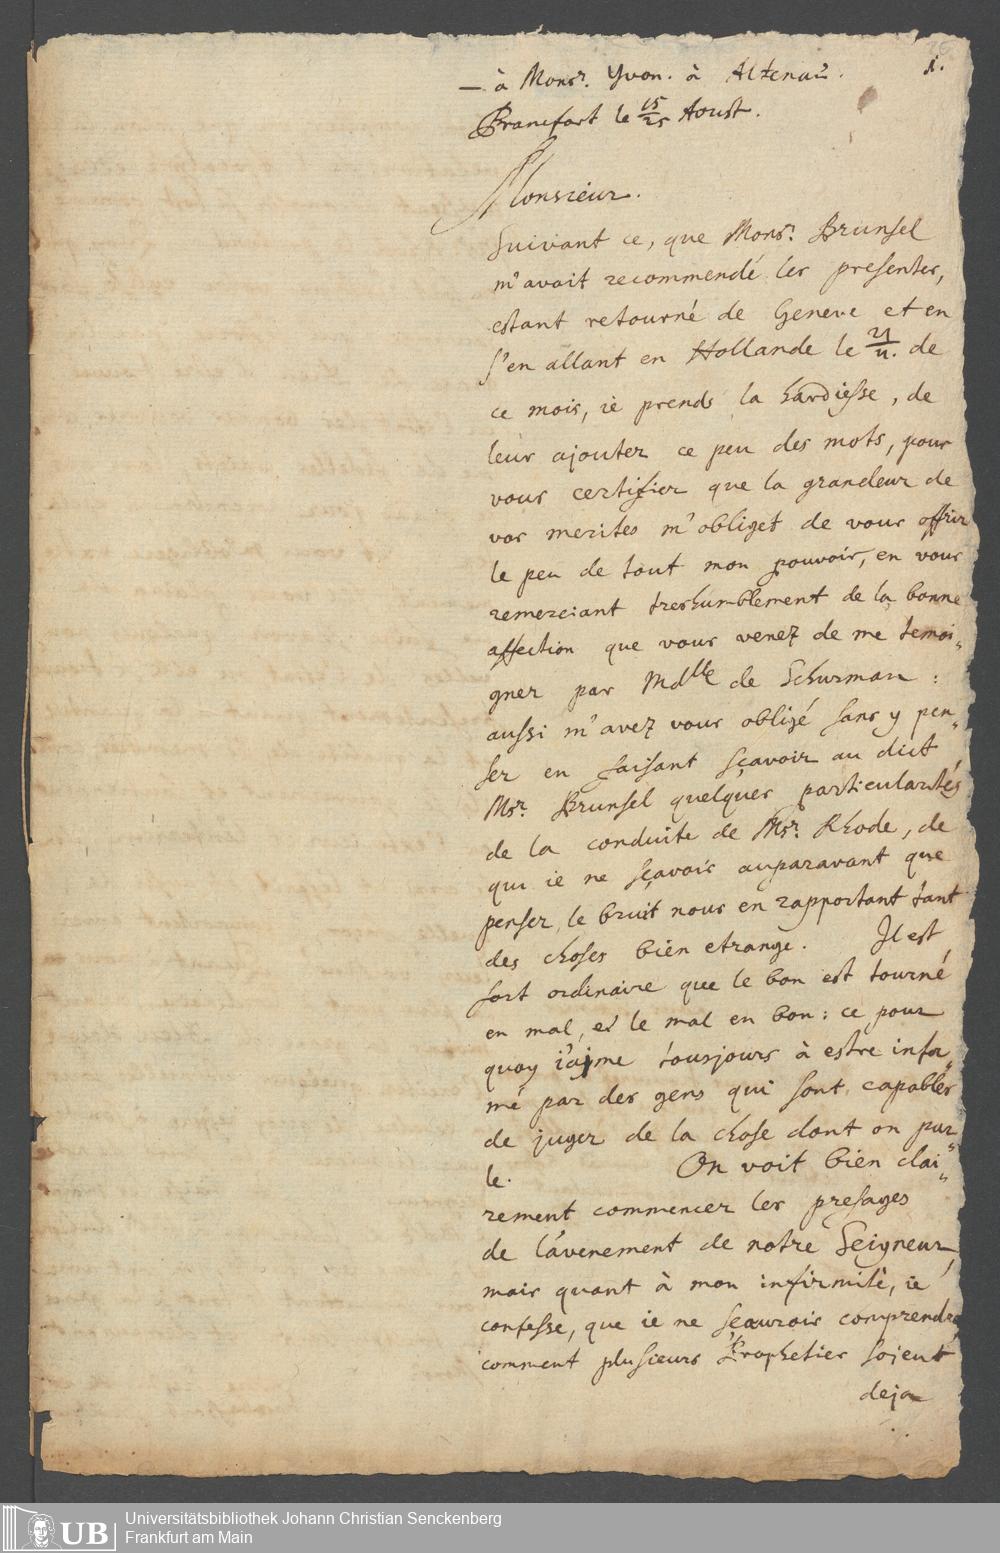 1.
– à Monsr. Yvon. à Altenau.
Francfort le 15/25 Aoust.
Monsieur.
Suivant ce, que Monsr. Brunsel
m'avait recommendé les presentes,
estant retourné de Geneve et en
s'en allant en Hollande le 21/11. de
ce mois, ie prends la hardiesse, de
leur ajouter ce peu des mots, pour
vous certifier que la grandeur de
vos merites m'obliget de vous offrir
le peu de tout mon pouvoir, en vous
remerciant treshumblement de la bonne
affection que vous venez de me temoi„
gner par Mdlle de Schurman :
aussi m'avez vous obligé sans y pen„
ser en faisant sçavoir au dict
Msr. Brunsel quelques particularités
de la conduite de Msr. Rhode, de
qui ie ne sçavois auparavant que
penser, le bruit nous en rapportant tant
des choses bien etrange. Il est
fort ordinaire que le bon est tourné
en mal, et le mal en bon : ce pour
quoy i'ajme tousjours à estre infor„
mé par des gens qui sont capables
de juger de la chose dont on par„
le. On voit bien clai„
rement commencer les presages
de l'avenement de notre Seigneur,
mais quant à mon infirmité, ie
confesse, que ie ne sçaurois comprendre,
comment plusieurs Propheties sojent
deja
UB
Universitätsbibliothek Johann Christian Senckenberg
Frankfurt am Main